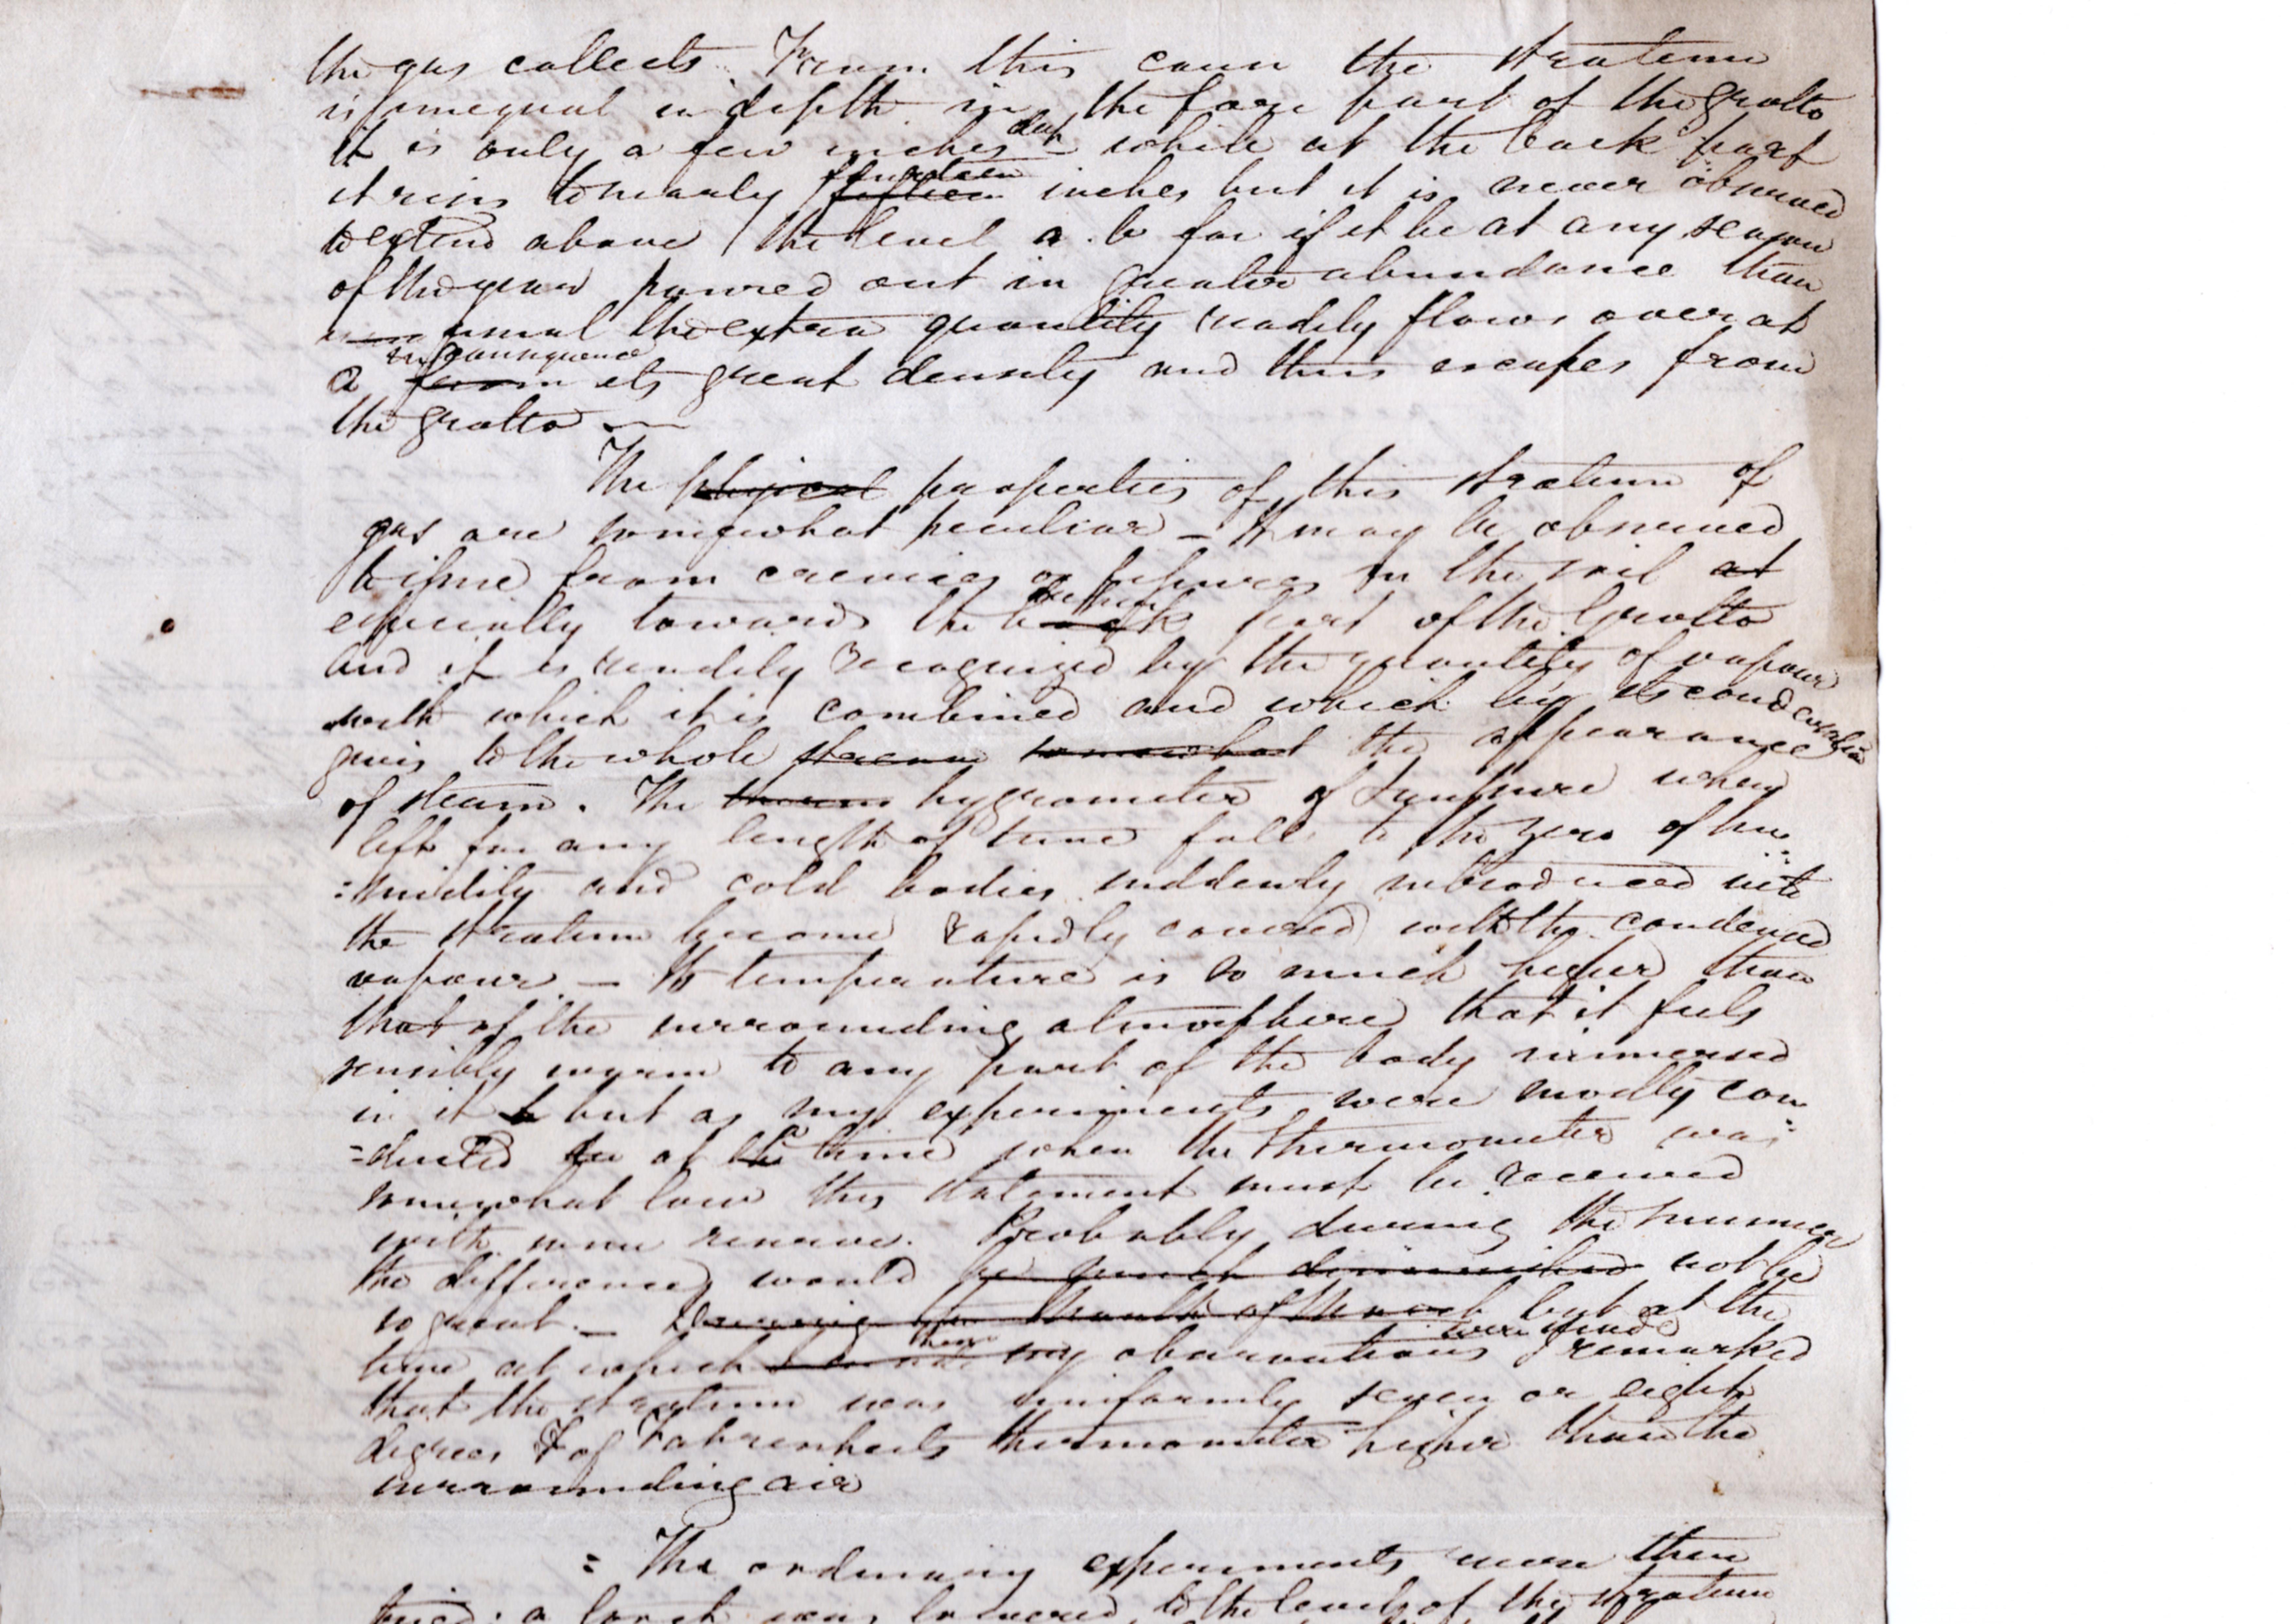 the gas collects. From this cause the stratum
is unequal in depth. in the fore part of the grotto
it is only a few inches deep – while at the back part
it rises to nearly fifteen fourteen inches but it is never observed
to extend above the level a. b for if it be at any season
of the year poured out in greater abundance than
usual the extra quantity readily flows over at
a from in consequence its great density and thus escapes from
the grotto. —
The physical properties of this stratum of
gas are somewhat peculiar – It may be observed
to issue from crevices or fissures in the soil at
especially towards the back part of the Grotto
and it is readily recognized by the quantity of vapour
with which it is combined and which by its condensation
gives to the whole somewhat the appearance
of steam. The hygrometer of Saussure when
left for any length of time falls to the zero of hu:
:midity and cold bodies suddenly introduced into
the stratum become rapidly covered with the condensed
vapour – Its temperature is so much higher than
that of the surrounding atmosphere that it feels
sensibly warm to any part of the body immersed
in it but as my experiments were mostly con:
=ducted at the a time when the thermometer was
somewhat low this statement must be received
with some reserve. Probably during the summer
the difference would be much diminished not be
so great. – During the month of March but at the
time at which these my observations were made I remarked
that the stratum was uniformly seven or eight
degrees F of Fahrenheits thermometer higher than the
surrounding air
= The ordinary experiments were then
tried: a torch was lowered to the level of the stratum